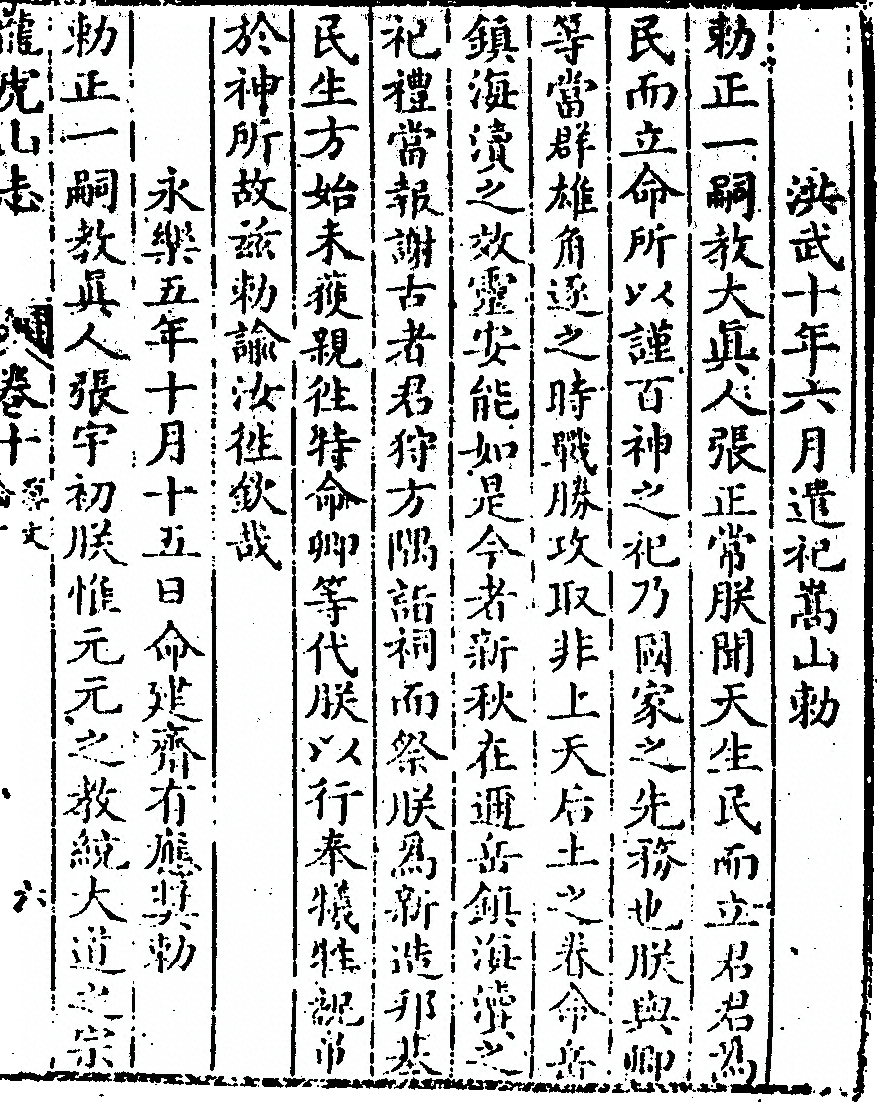 洪武十年六月遣祀嵩山勅
勅正一嗣教大眞人張正常朕聞天生民而立君君爲
民而立命所以謹百神之祀乃國家之先務也朕與卿
等當群雄角逐之時戰勝攻取非上天后土之眷命岳
鎮海瀆之效靈安能如是今者新秋在邇岳鎮海瀆之
祀禮當報謝古者君狩方隅詣祠而祭朕爲新造邦基
民生方始未獲親徃特命卿等代朕以行奉犧牲祝帛
於神所故茲勅諭汝徃欽哉
永樂五年十月十五日命建齋有應獎勅
勅正一嗣教眞人張宇初朕惟元元之教統大道之宗
龍虎山志
卷十
六